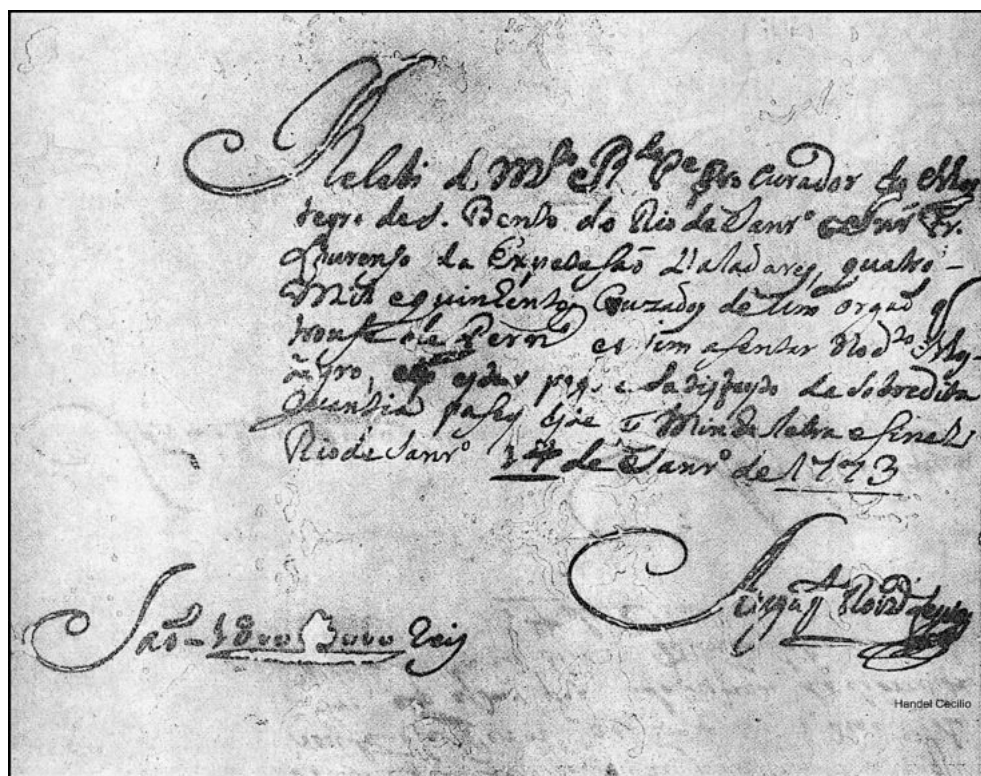 Resebi do M.to R.do P.e Procurador do Mos
teyro de S. Bento do Rio de Janr.o Fr.
Lourenso da Expetasaõ Valadares, quatro
Mil e quinhentos Cruzados de um orgaõ q
trouse de Pern.co e vim asentar No d.to Mos
teyro, e por estar pago e satisfeyto da sobredita
quantia pasey este de Minha letra e sinal
Rio de Janr.o 14 de Janr.o de 1773
Saõ 1800000 Reis
Handel Cecilio